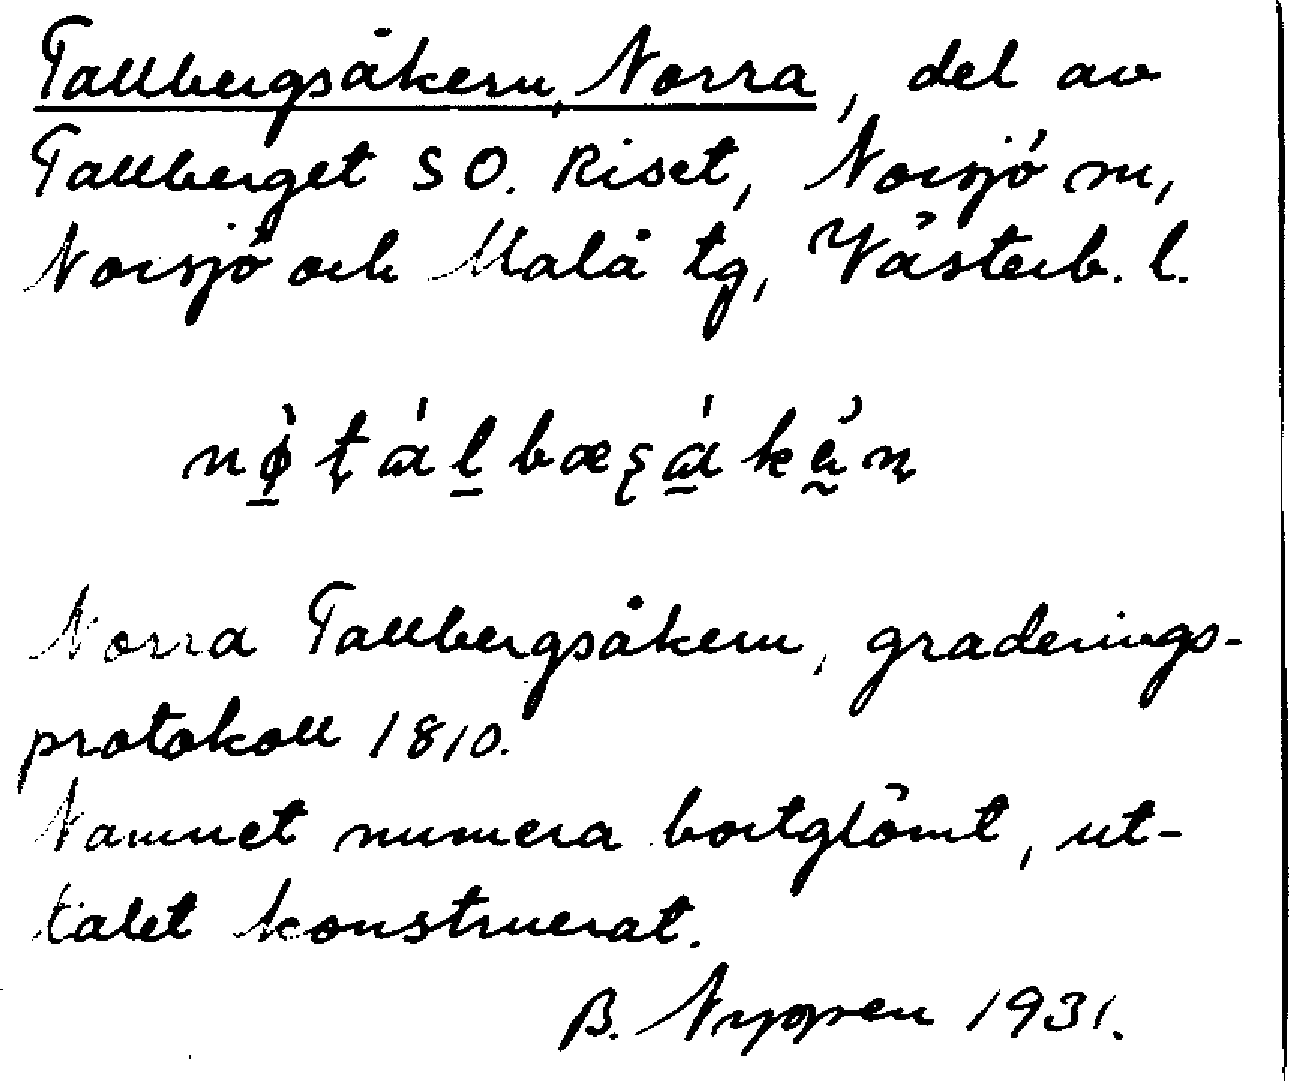 Tallbergsåkern, Norra, del av
Tallberget SO. Riset, Norsjö sn,
Norsjö och Malå tg, Västerb. l.
Norra Tallbergsåkern, graderings-
protokoll 1810.
Namnet numera bortglömt, ut-
talet konstruerat.
B. 1931.